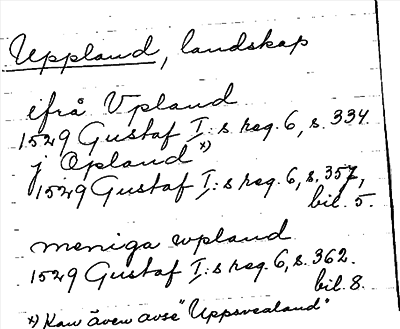 Uppland, landskap
ifrå Vpland
1529 Gustaf I:s reg. 6, s. 334.
j Opland x)
1529 Gustaf I:s reg. 6, s. 357,
bil. 5.
meniga vpland
1529 Gustaf I:s reg. 6, s. 362.
bil. 8.
x) Kan även avse "Uppsvealand"